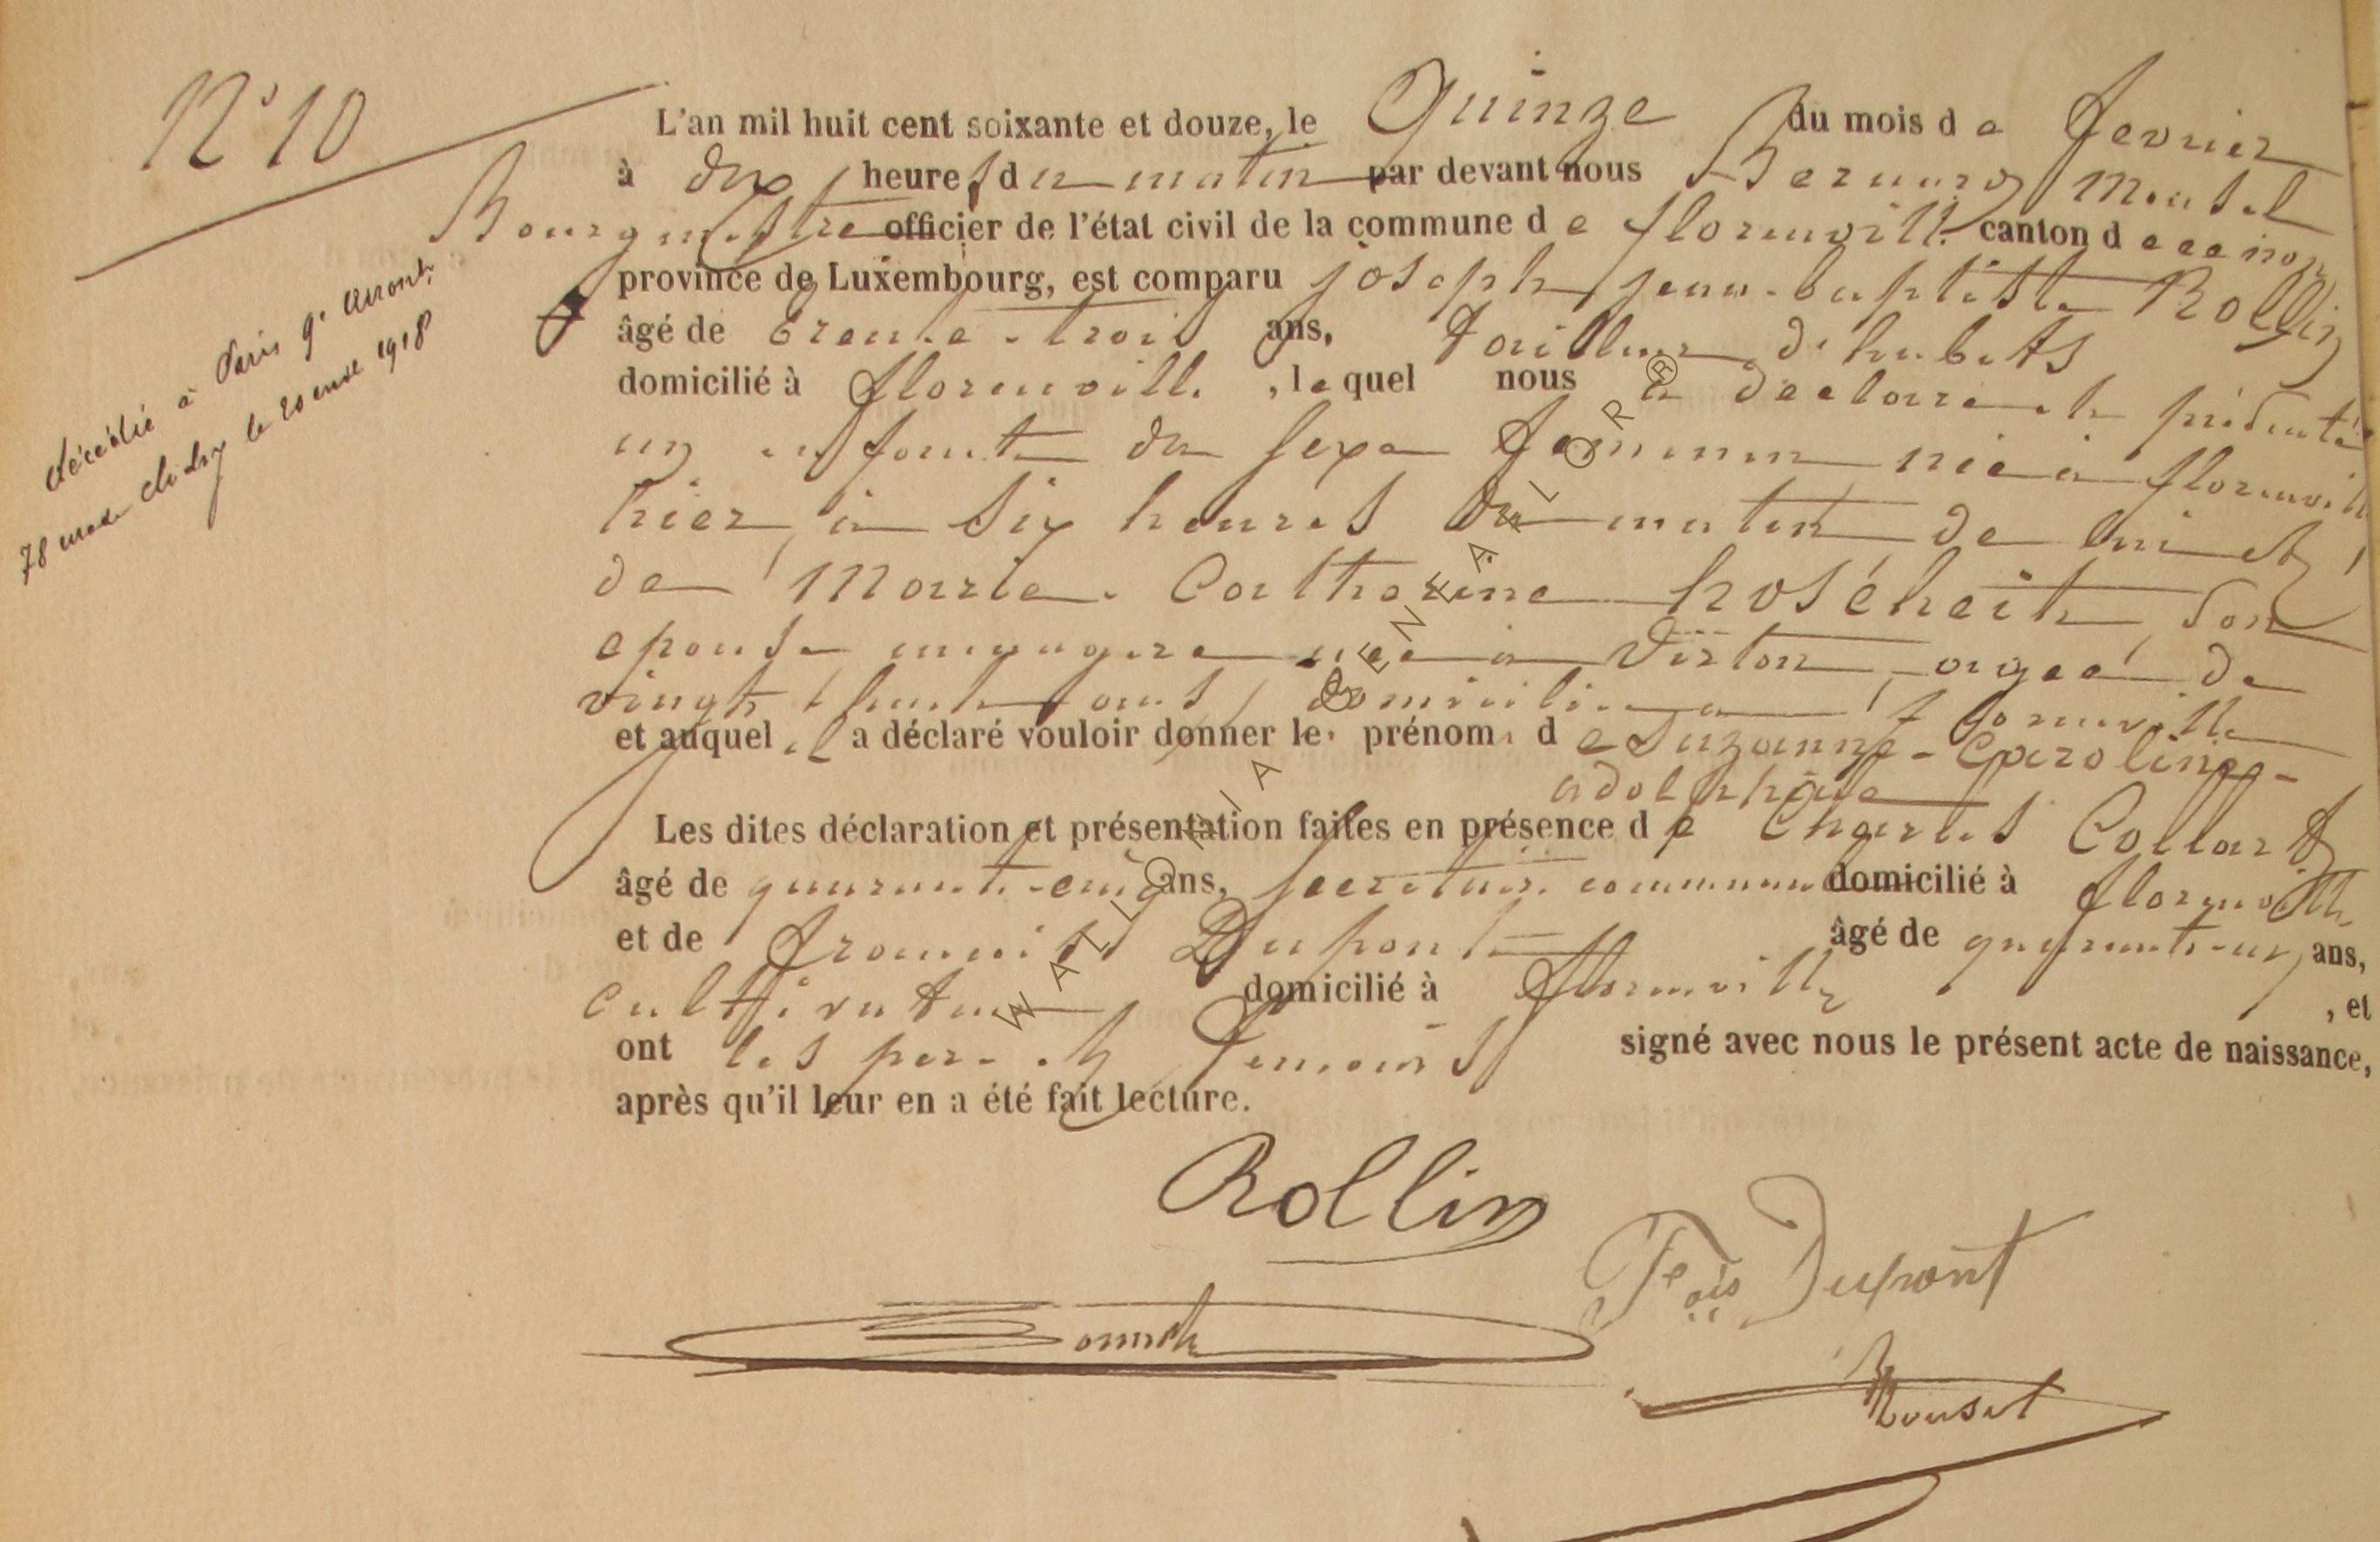 N° 10
L'an mil huit cent soixante et douze, le Quinze du mois de fevrier
à dix heures du matin par devant nous Bernard Mousel
Bourgmestre officier de l'état civil de la commune de florenville canton de
province de Luxembourg, est comparu joseph jean-baptiste Rollin
âgé de trente-trois ans, tailleur d'habits
domicilié à florenville, lequel nous a déclaré et présenté
un enfant du sexe feminin née à florenville
hier à six heures du matin de lui et
de Marie. Catherine hoséheit son
epouse menagere née à Virton agée de
vingt huit ans, domiciliée à florenville
et auquel il a déclaré vouloir donner les prénoms de Suzanne-Caroline-
adolphine
Les dites déclaration et présentation faites en présence de Charles Collart
âgé de quarante-cinq ans, secretaire communal domicilié à florenville
et de francois Dupont âgé de quarante-un ans,
cultivateur domicilié à florenville, et
ont les pere et temoins signé avec nous le présent acte de naissance,
après qu'il leur en a été fait lecture.
décédée à Paris 9e arront.
78 rue de clichy le 20 1918
Rollin
Fçois Dupont
Mousel
WALLONIA GENEALOR ®